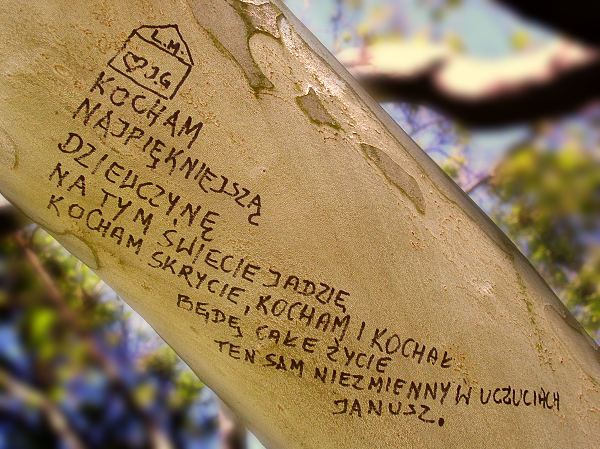 L.M.
♡ J.G
KOCHAM
NAJPIĘKNIEJSZĄ
DZIEWCZYNĘ
NA TYM SWIECIE JADZIĘ
KOCHAM SKRYCIE, KOCHAM I KOCHAŁ
BĘDĘ CAŁE ŻYCIE
TEN SAM NIEZMIENNY W UCZUCIACH
JANUSZ.